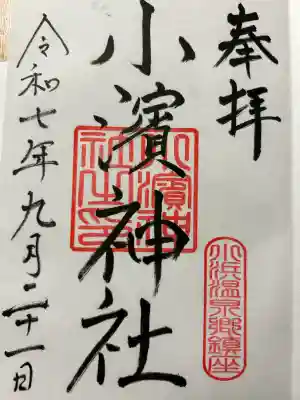 奉拝
小濱神社
小濱神社之印
小浜温泉郷鎮座
令和七年九月二十一日